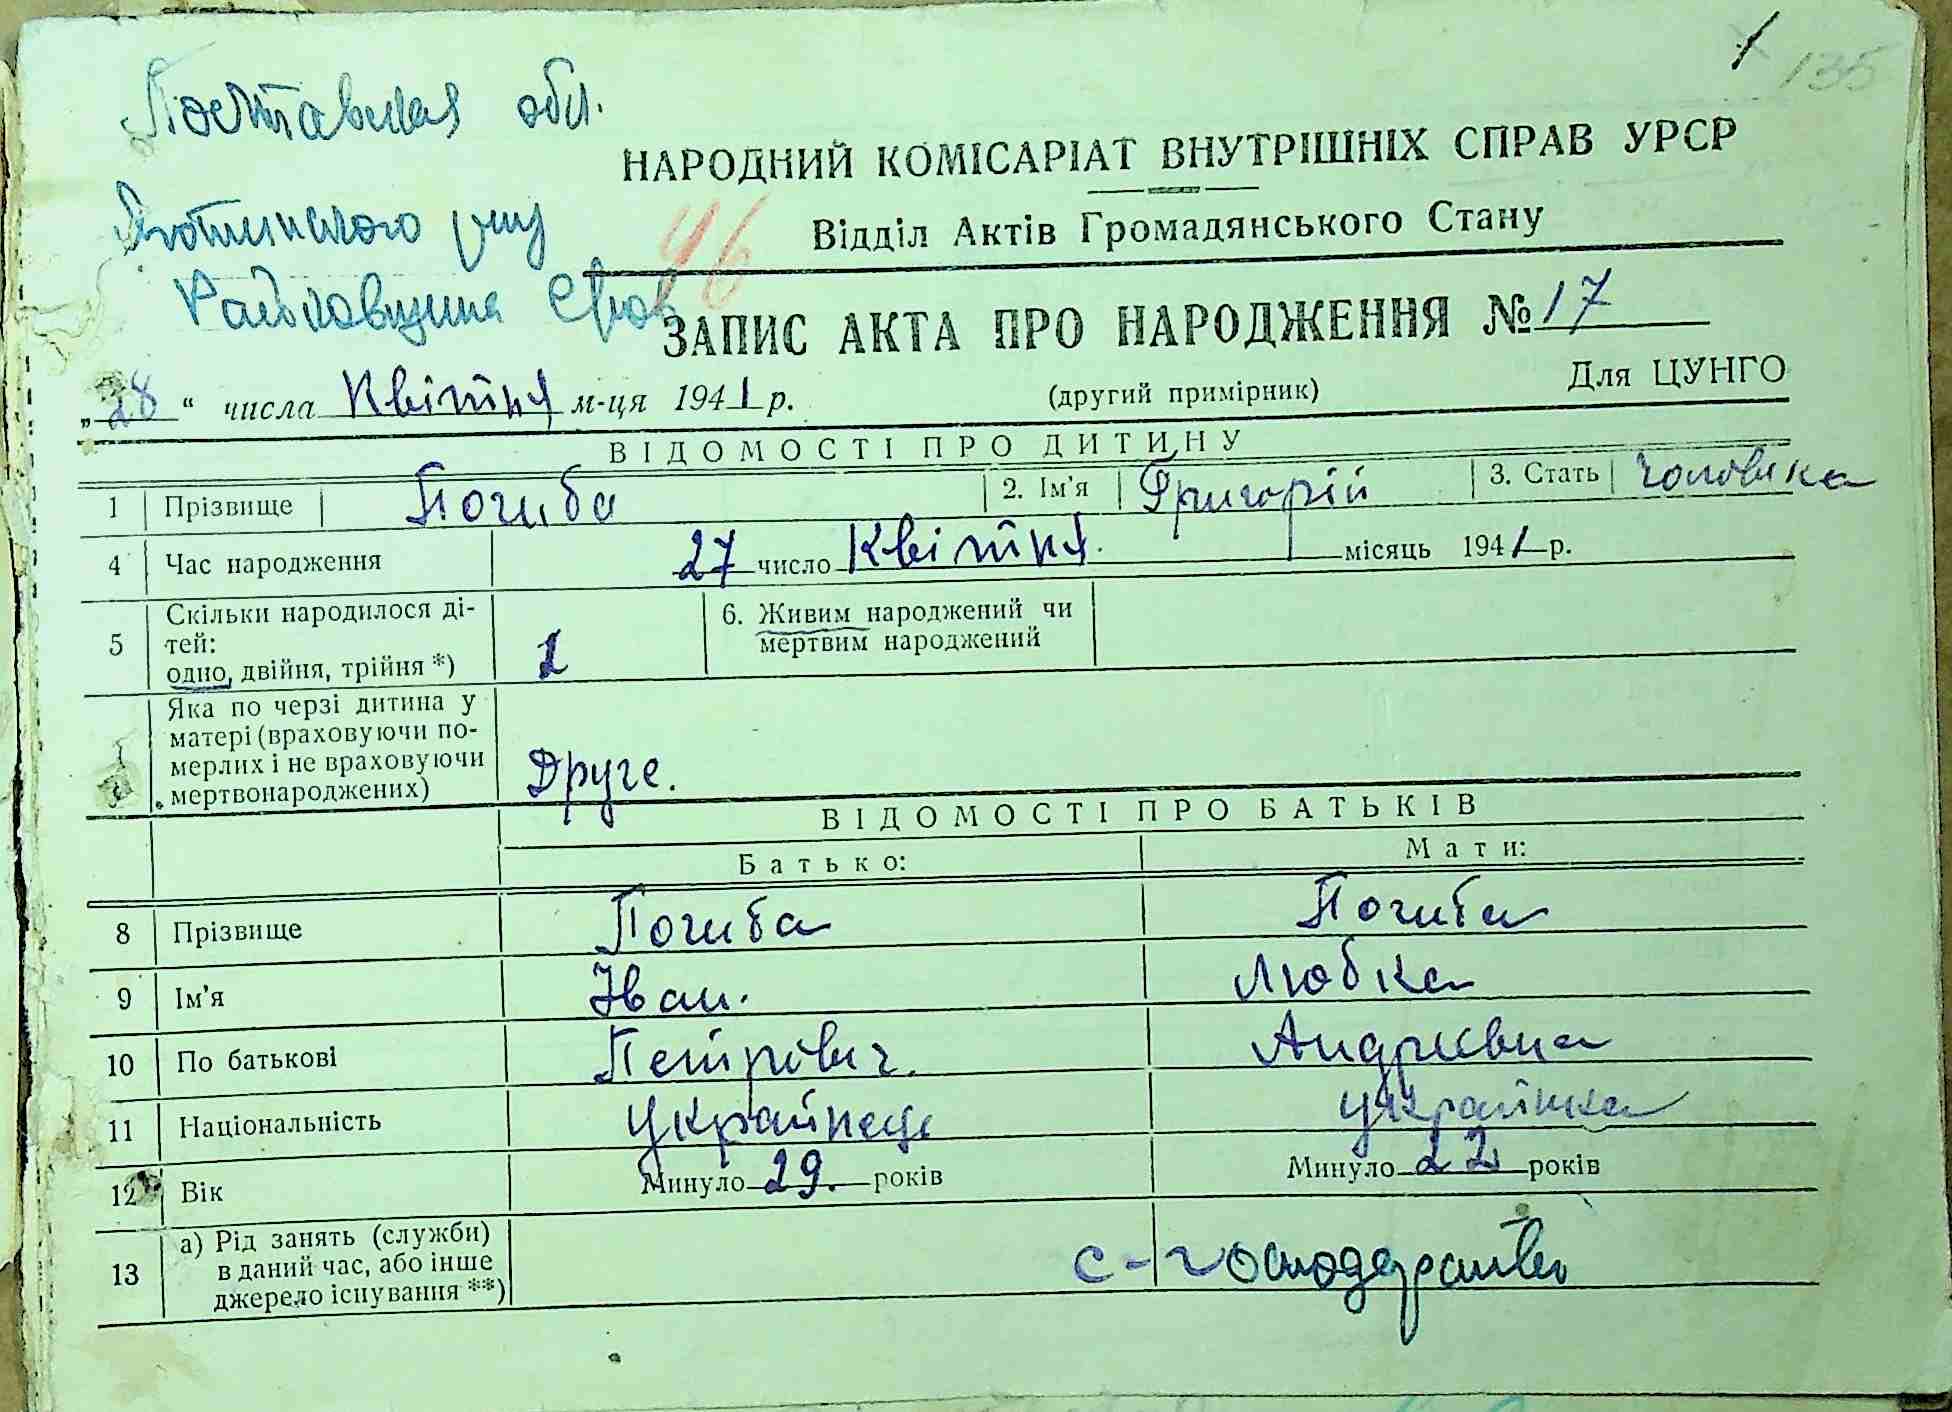 1 135
Полтавская обл.
НАРОДНИЙ КОМІСАРІАТ ВНУТРІШНІХ СПРАВ УРСР
Яготинского р-ну
46
Відділ Актів Громадянського Стану
ЗАПИС АКТА ПРО НАРОДЖЕННЯ № 17
„28“ числа Квітня м-ця 1941 р. (другий примірник) Для ЦУНГО
ВІДОМОСТІ ПРО ДИТИНУ
1 Прізвище Погиба 2. Ім'я Григорій 3. Стать чоловіка
4 Час народження 27 число Квітня. місяць 1941 р.
5 Скільки народилося ді-
тей:
одно, двійня, трійня *) 1
6. Живим народжений чи
мертвим народжений
Яка по черзі дитина у
матері (враховуючи по-
мерлих і не враховуючи
мертвонароджених) Друге.
ВІДОМОСТІ ПРО БАТЬКІВ
Батько: Мати:
8 Прізвище Погиба Погиба
9 Ім'я Іван. Любка
10 По батькові Петрович. Андріївна
11 Національність Українець українка
12 Вік Минуло 29. років Минуло 22 років
13 а) Рід занять (служби)
в даний час, або інше
джерело існування **) с-господарство